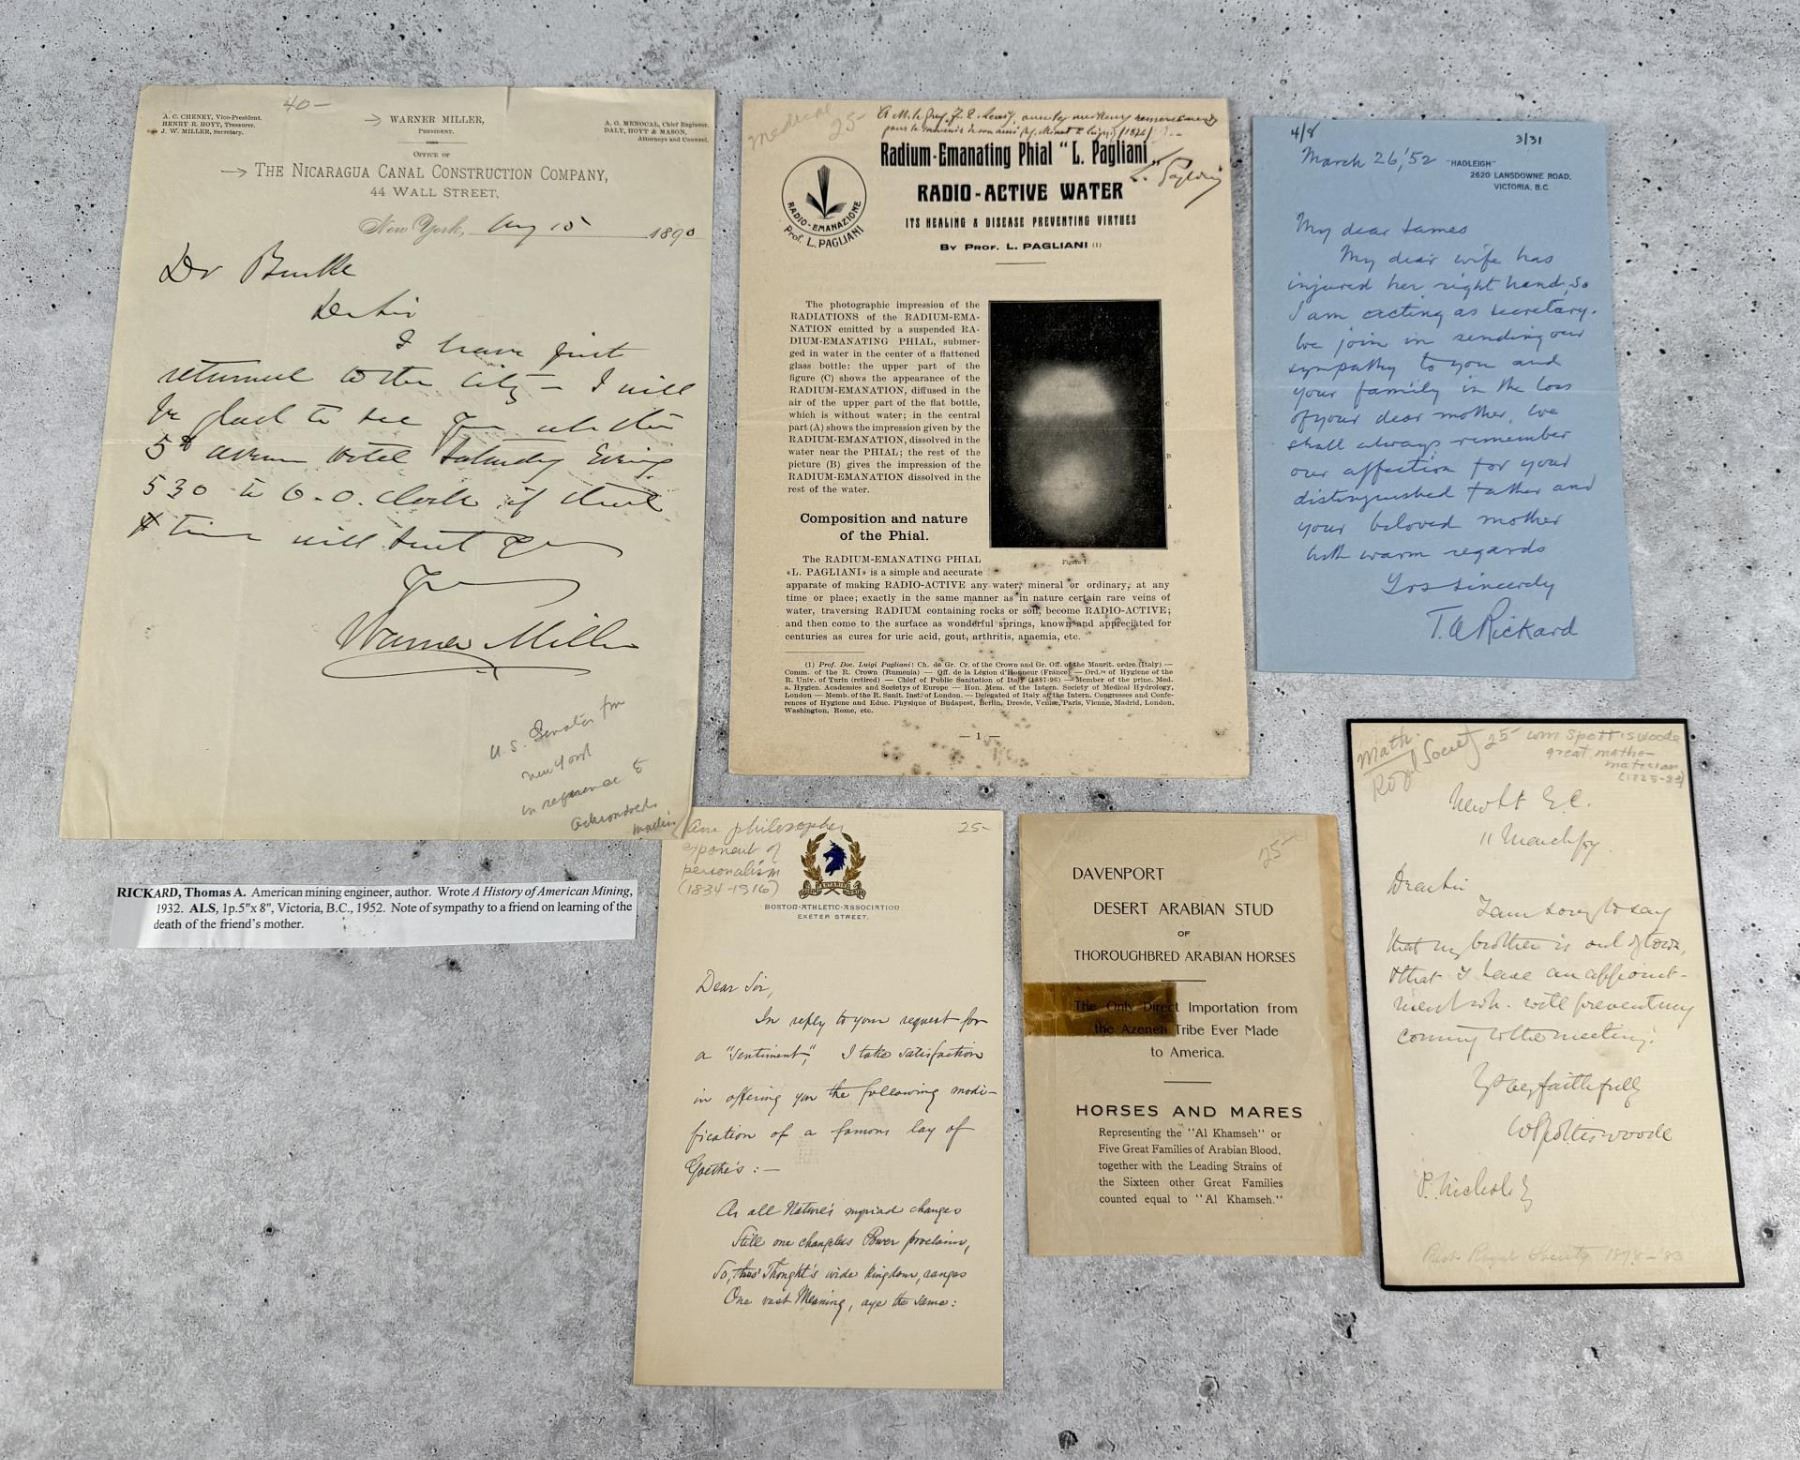 40-
A. C. CHENEY, Vice-President.
HENRY R. HOYT, Treasurer.
J. W. MILLER, Secretary.
WARNER MILLER,
PRESIDENT.
A. G. MENOCAL, Chief Engineer.
DALY, HOYT & MASON,
Attorneys and Counsel.
OFFICE OF
THE NICARAGUA CANAL CONSTRUCTION COMPANY,
44 WALL STREET,
New York, 15 1890
Dr Burke
Dear Sir
I have just
returned to the City - I will
be glad to see you at the
5th avenue Hotel Saturday Evening
530 to 6-0.clock if that
time will suit you
Yours
Warner Miller
U.S. Senator from
New York
in reference to
RICKARD, Thomas A. American mining engineer, author. Wrote A History of American Mining,
1932. ALS, 1p.5"x 8", Victoria, B.C., 1952. Note of sympathy to a friend on learning of the
death of the friend's mother.
medical
25-
Radium-Emanating Phial "L. Pagliani"
L. Pagliani
RADIO-ACTIVE WATER
ITS HEALING & DISEASE PREVENTING VIRTUES
BY PROF. L. PAGLIANI (1)
RADIO-EMANAZIONE
Prof. L. PAGLIANI
The photographic impression of the
RADIATIONS of the RADIUM-EMA-
NATION emitted by a suspended RA-
DIUM-EMANATING PHIAL, submer-
ged in water in the center of a flattened
glass bottle: the upper part of the
figure (C) shows the appearance of the
RADIUM-EMANATION, diffused in the
air of the upper part of the flat bottle,
which is without water; in the central
part (A) shows the impression given by the
RADIUM-EMANATION, dissolved in the
water near the PHIAL; the rest of the
picture (B) gives the impression of the
RADIUM-EMANATION dissolved in the
rest of the water.
C
B
A
Figure 1
Composition and nature
of the Phial.
The RADIUM-EMANATING PHIAL
«L. PAGLIANI» is a simple and accurate
apparate of making RADIO-ACTIVE any water, mineral or ordinary, at any
time or place; exactly in the same manner as in nature certain rare veins of
water, traversing RADIUM containing rocks or soil, become RADIO-ACTIVE;
and then come to the surface as wonderful springs, known and appreciated for
centuries as cures for uric acid, gout, arthritis, anaemia, etc.
(1) Prof. Doc. Luigi Pagliani: Ch. de Gr. Cr. of the Crown and Gr. Off. of the Maurit. ordre (Italy) —
Comm. of the R. Crown (Rumenia) — Off. de la Légion d'Honneur (France) — Ord.re of Hygiene of the
R. Univ. of Turin (retired) — Chief of Public Sanitation of Italy (1887-96) — Member of the princ. Med.
a. Hygien. Academies and Societys of Europe — Hon. Mem. of the Intern. Society of Medical Hydrology,
London — Memb. of the R. Sanit. Inst. of London. — Delegated of Italy at the Intern. Congresses and Confe-
rences of Hygiene and Educ. Physique of Budapest, Berlin, Dresde, Venise, Paris, Vienne, Madrid, London,
Washington, Rome, etc.
— 1 —
4/8
3/31
March 26, '52
"HADLEIGH"
2620 LANSDOWNE ROAD,
VICTORIA, B.C.
My dear James
My dear wife has
injured her right hand, so
I am acting as secretary.
We join in sending our
sympathy to you and
your family in the loss
of your dear mother. We
shall always remember
our affection for your
distinguished father and
your beloved mother
With warm regards
Yrs sincerely
T. A Rickard
Am philosopher
exponent of
personalism
(1834-1916)
25-
BOSTON·ATHLETIC·ASSOCIATION
EXETER STREET.
Dear Sir,
In reply to your request for
a "sentiment", I take satisfaction
in offering you the following modi-
fication of a famous lay of
Goethe's:—
As all Nature's myriad changes
Still one changeless Power proclaim,
So, thro' Thought's wide kingdom, ranges
One vast Meaning, aye the same:
25-
DAVENPORT
DESERT ARABIAN STUD
OF
THOROUGHBRED ARABIAN HORSES
The Only Direct Importation from
the Azeneh Tribe Ever Made
to America.
HORSES AND MARES
Representing the "Al Khamseh" or
Five Great Families of Arabian Blood,
together with the Leading Strains of
the Sixteen other Great Families
counted equal to "Al Khamseh."
Math.
Royal Society
25- Wm Spottiswoode
great mathe-
matician
(1825-83)
New St E.C.
11 March/70
Dear Sir
I am sorry to say
that my brother is out of town,
& that I have an appoint-
ment wh. will prevent my
coming to the meeting.
Yrs very faithfully
W Spottiswoode
P. Nichols
Pres. Royal Society 1878-83